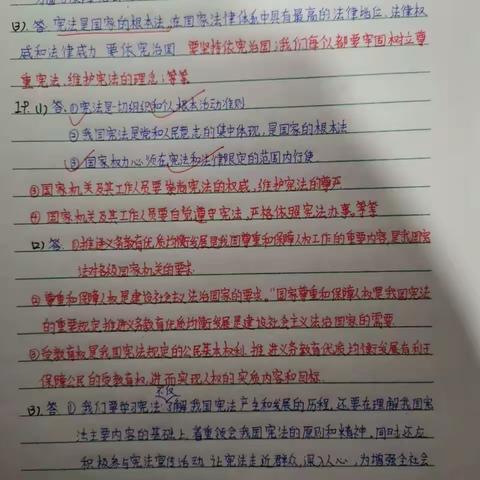 (3) 答：宪法是国家的根本法，在国家法律体系中具有最高的法律地位、法律权
威和法律效力 要依宪治国 要坚持依宪治国；我们每个人都要牢固树立尊
重宪法、维护宪法的理念；等等
19. (1) 答：①宪法是一切组织和个人根本活动准则
②我国宪法是党和人民意志的集中体现，是国家的根本法
③国家权力必须在宪法和法律限定的范围内行使
③国家机关及其工作人员要崇尚宪法的权威，维护宪法的尊严
④国家机关及其工作人员要自觉遵守宪法，严格依照宪法办事。等等
(2) 答：①推进义务教育优质均衡发展是我国尊重和保障人权工作的重要内容，是我国宪
法对各级国家机关的要求
②尊重和保障人权是建设社会主义法治国家的要求。“国家尊重和保障人权”是我国宪法
的重要规定 推进义务教育优质均衡发展是建设社会主义法治国家的需要
③受教育权是我国宪法规定的公民基本权利 推进义务教育优质均衡发展有利于
保障公民的受教育权，进而实现人权的实质内容和目标
(3) 答：①我们要学习宪法 不仅了解我国宪法产生和发展的历程，还要在理解我国宪
法主要内容的基础上，着重领会我国宪法的原则和精神，同时还应
积极参与宪法宣传活动 让宪法走近群众，深入人心，为增强全社会